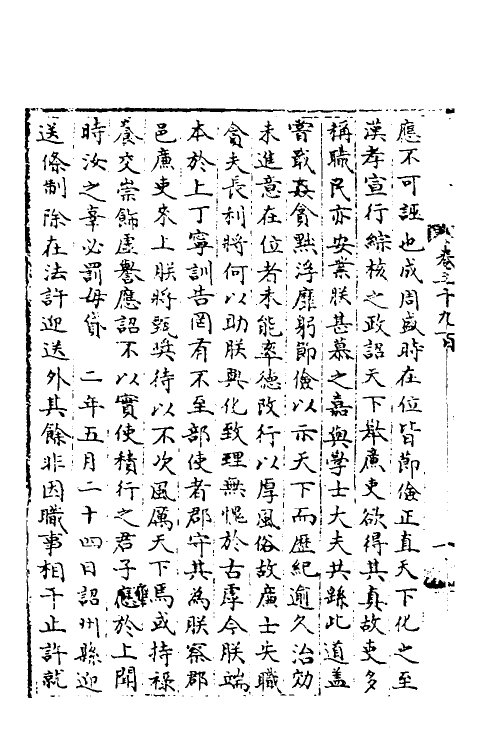 卷三千九百
一
應不可誣也成周盛時在位皆節儉正直天下化之至
漢孝宣行綜核之政詔天下舉廉吏欲得其真故吏多
稱職民亦安業朕甚慕之嘉與學士大夫共繇此道蓋
嘗戢姦貪黜浮靡躬節儉以示天下而歷紀逾久治効
未進意在位者未能率德改行以厚風俗故廉士失職
貪夫長利將何以助朕興化致理無愧於古虖今朕端
本於上丁寧訓告罔有不至部使者郡守其為朕察郡
邑廉吏來上朕將甄奬待以不次風厲天下焉或持祿
養交崇飾虛譽應詔不以實使積行之君子壅於上聞
時汝之辜必罰毋貸 二年五月二十四日詔州縣迎
送條制除在法許迎送外其餘非因職事相干止許就